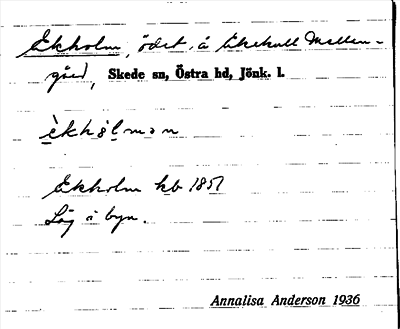 Ekholm, ödet, å Ekekull Mellan-
gård, Skede sn, Östra hd, Jönk. l.
èkhɷlman
Ekholm kb 1857
Låg å byn.
Annalisa Anderson 1936